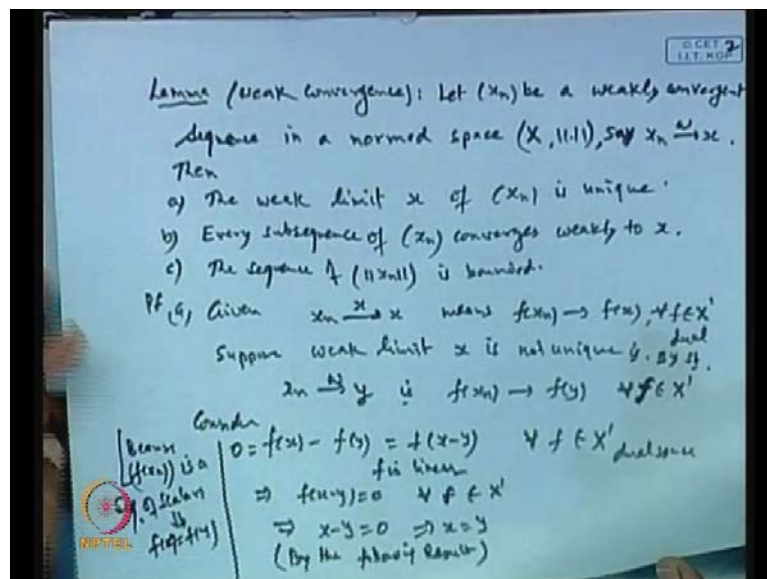 O CET
I.I.T. KGP
2
Lemma (Weak Convergence): Let (xn) be a weakly convergent
Sequence in a normed space (X, ||.||), say xn -w-> x.
Then
a) The weak limit x of (xn) is unique.
b) Every subsequence of (xn) converges weakly to x.
c) The sequence of (||xn||) is bounded.
Pf (a) Given xn -x-> x means f(xn) → f(x), ∀ f ∈ X'
dual
Suppose weak limit x is not unique
xn -w-> y ie f(xn) → f(y) ∀ f ∈ X'
Consider
0 = f(x) - f(y) = f(x-y) ∀ f ∈ X' dual space
f is linear
Because
(f(xn)) is a
Seq. of scalars
⇓
f(x)=f(y)
⇒ f(x-y)=0 ∀ f ∈ X'
⇒ x-y=0 ⇒ x=y
(By the Result)
NPTEL